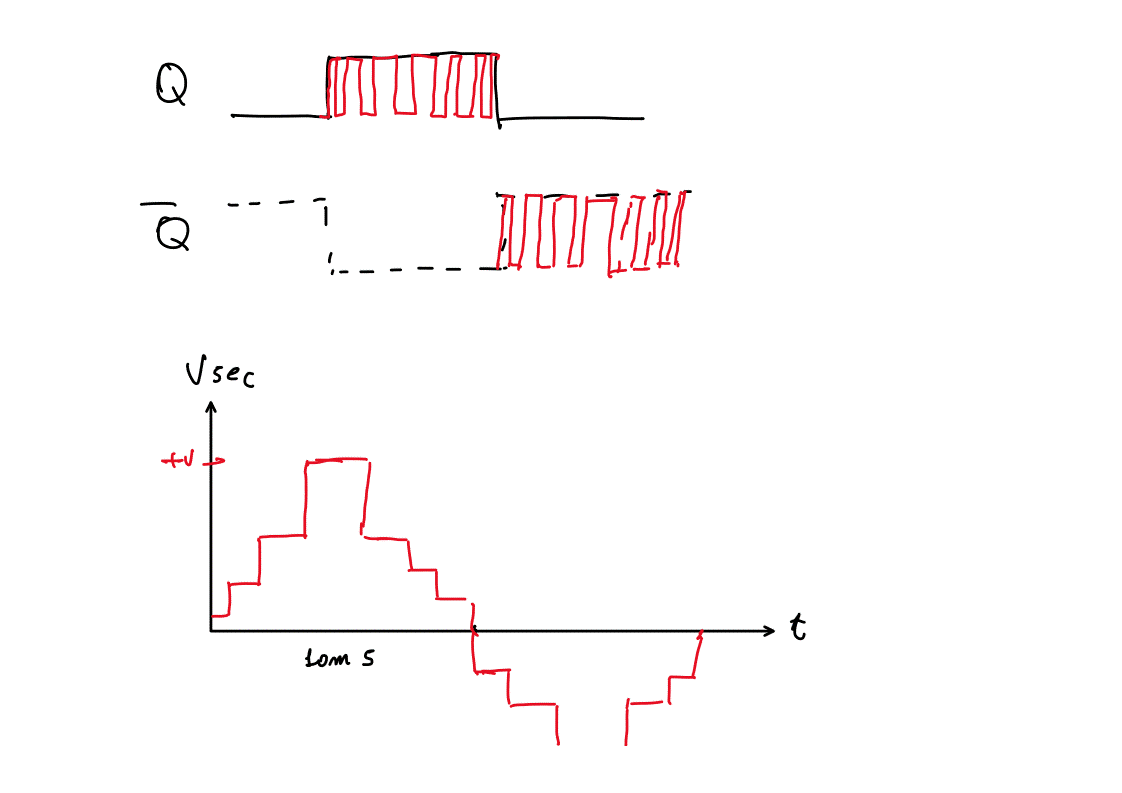 Q
Q̅
Vsec
+V
t
10m s